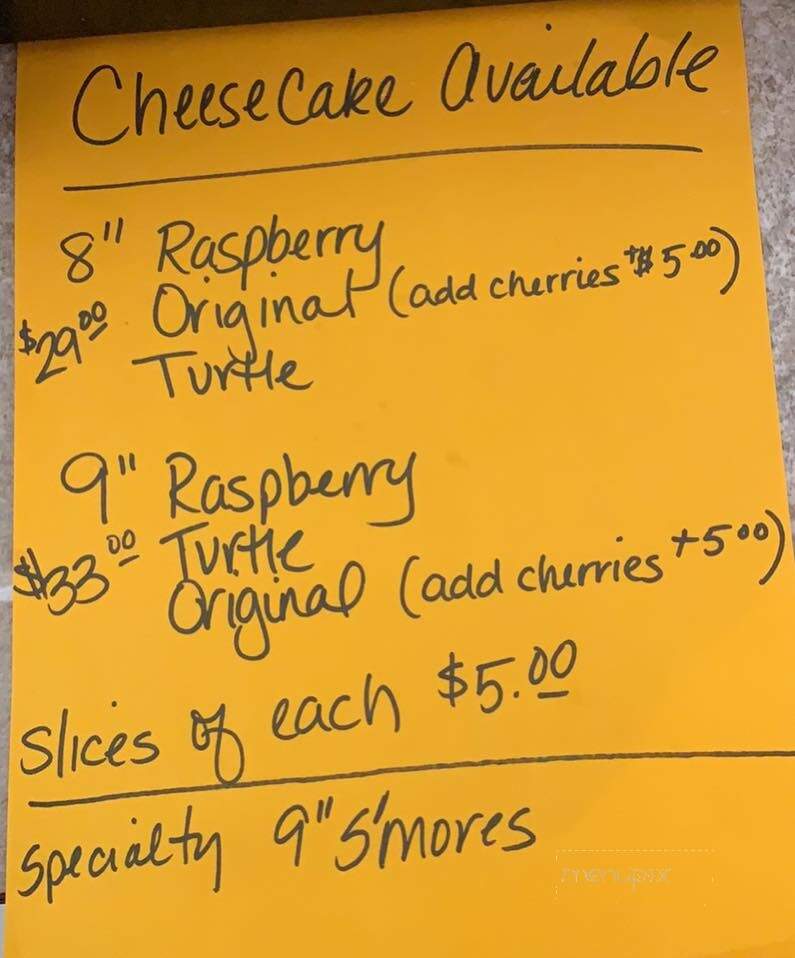 CheeseCake Available
8" Raspberry
$29.00 Original (add cherries +$5.00)
Turtle
9" Raspberry
$33.00 Turtle
Original (add cherries +5.00)
Slices of each $5.00
Specialty 9" S'mores
menupix